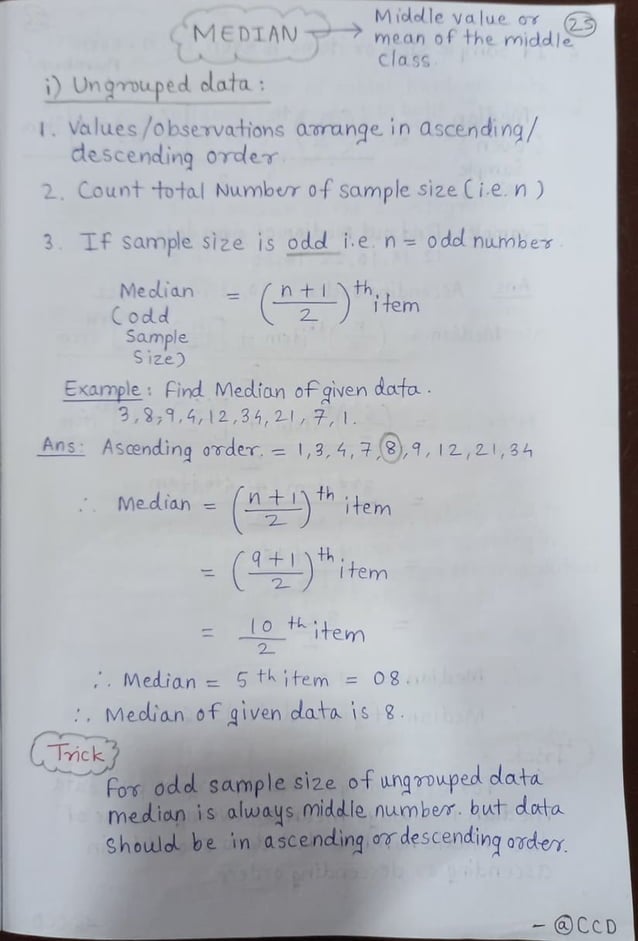 MEDIAN → Middle value or
mean of the middle
class.
23
i) Ungrouped data :
1. Values/observations arrange in ascending/
descending order.
2. Count total Number of sample size (i.e. n)
3. If sample size is odd i.e. n = odd number.
Median (odd Sample Size) = (n+1/2)th item
Example : Find Median of given data.
3,8,9,4,12,34,21,7,1.
Ans: Ascending order. = 1,3,4,7,8,9,12,21,34
∴ Median = (n+1/2)th item
= (9+1/2)th item
= 10/2 th item
∴ Median = 5th item = 08.
∴ Median of given data is 8.
Trick
For odd sample size of ungrouped data
median is always middle number. but data
should be in ascending or descending order.
- @CCD